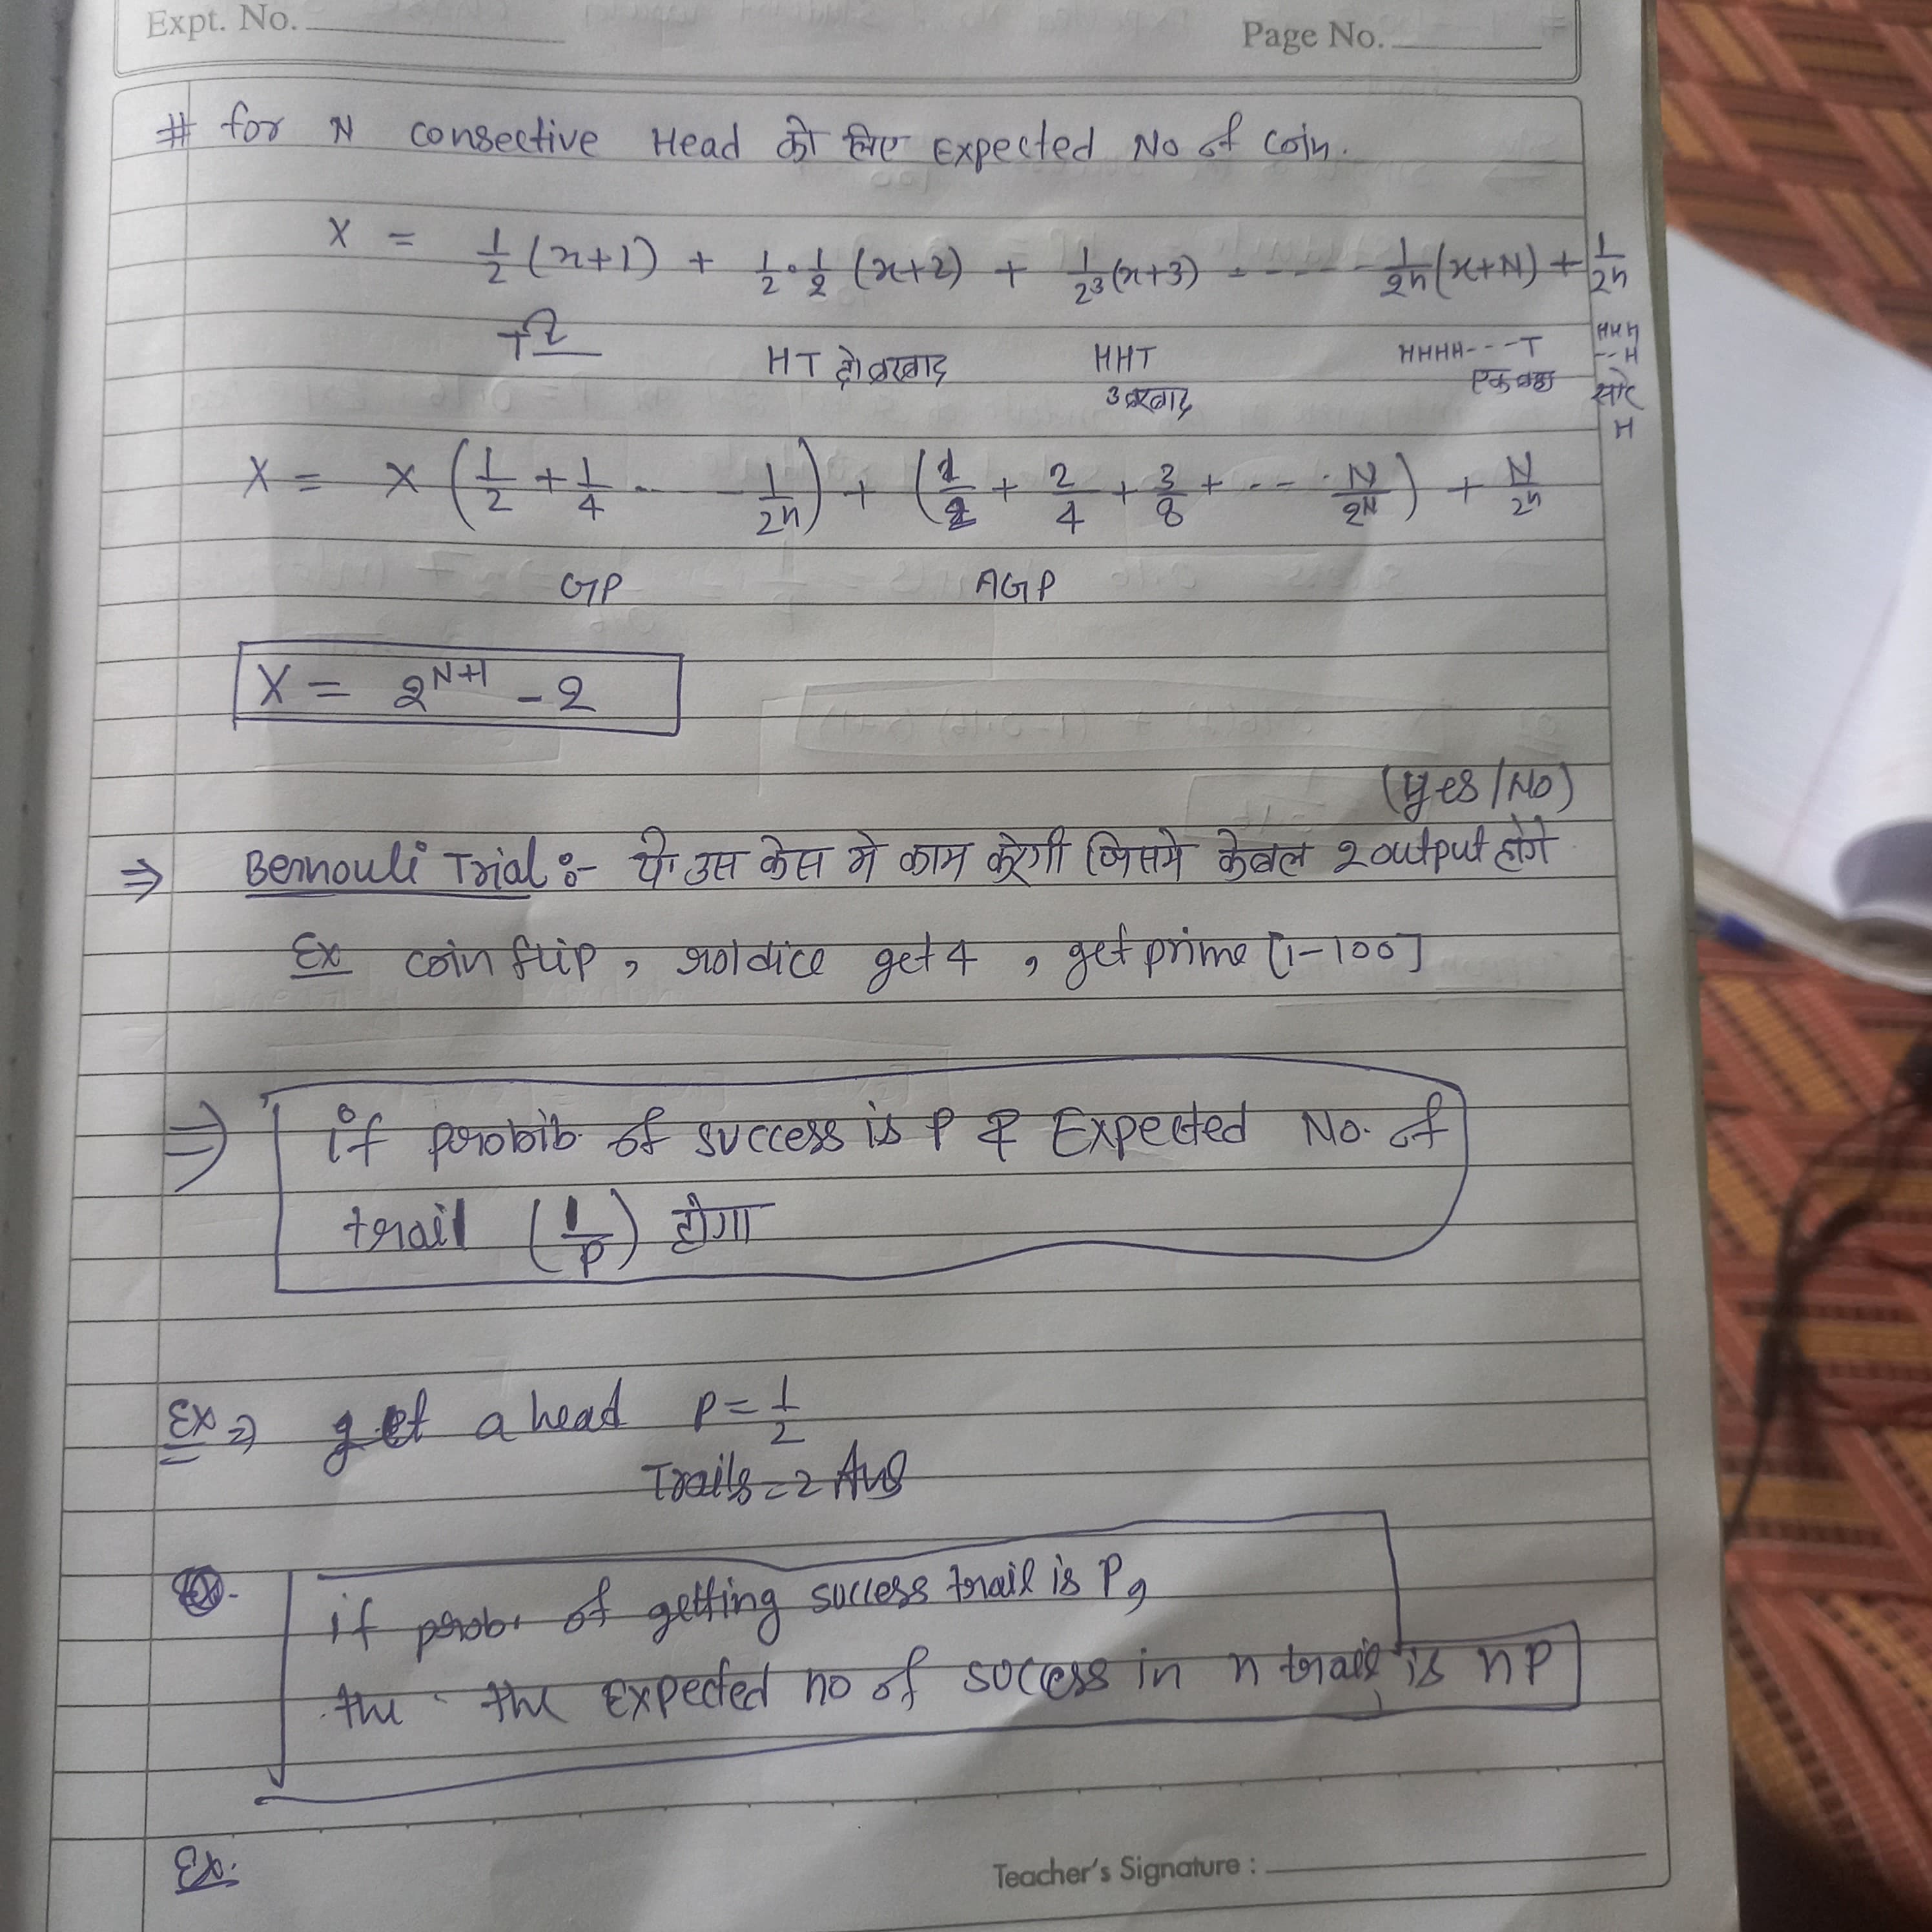 Expt. No.
Page No.
# for N consective Head को लिए Expected No of coin.
X = 1/2 (x+1) + 1/2 · 1/2 (x+2) + 1/2³ (x+3) - - - - - 1/2n (x+N) + 1/2n
T HT दो बरबाद HHT HHHH---T HHH
3 बरबाद --H
H
X = X (1/2 + 1/4 - - - 1/2n) + (1/2 + 2/4 + 3/8 + - - - N/2^N) + N/2^n
GP AGP
X = 2^(N+1) - 2
(yes/No)
⇒ Bernouli Trial :- ये उस केस मे काम करेगी जिसमे केवल 2 output होगे
Ex coin flip, rol dice get 4, get prime [1-100]
⇒ if probib. of success is P & Expected No. of
trail (1/P) होगा
Ex ⇒ get a head P = 1/2
Trails = 2 Ans
if prob. of getting success trail is P,
the the Expected no of success in n trail is nP
Ex.
Teacher's Signature :